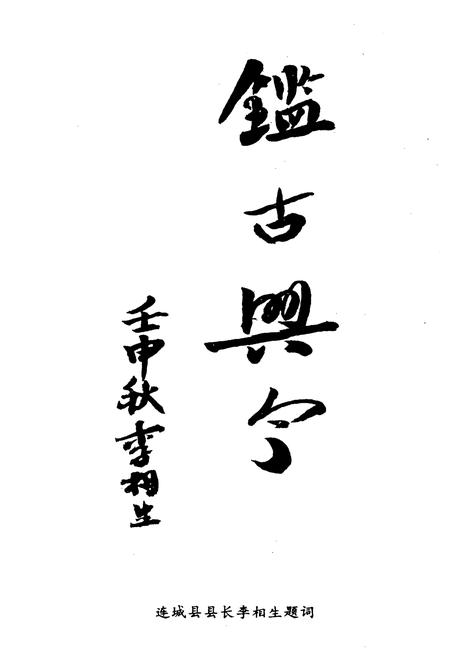 鑑古興今
壬申秋李相生
连城县县长李相生题词